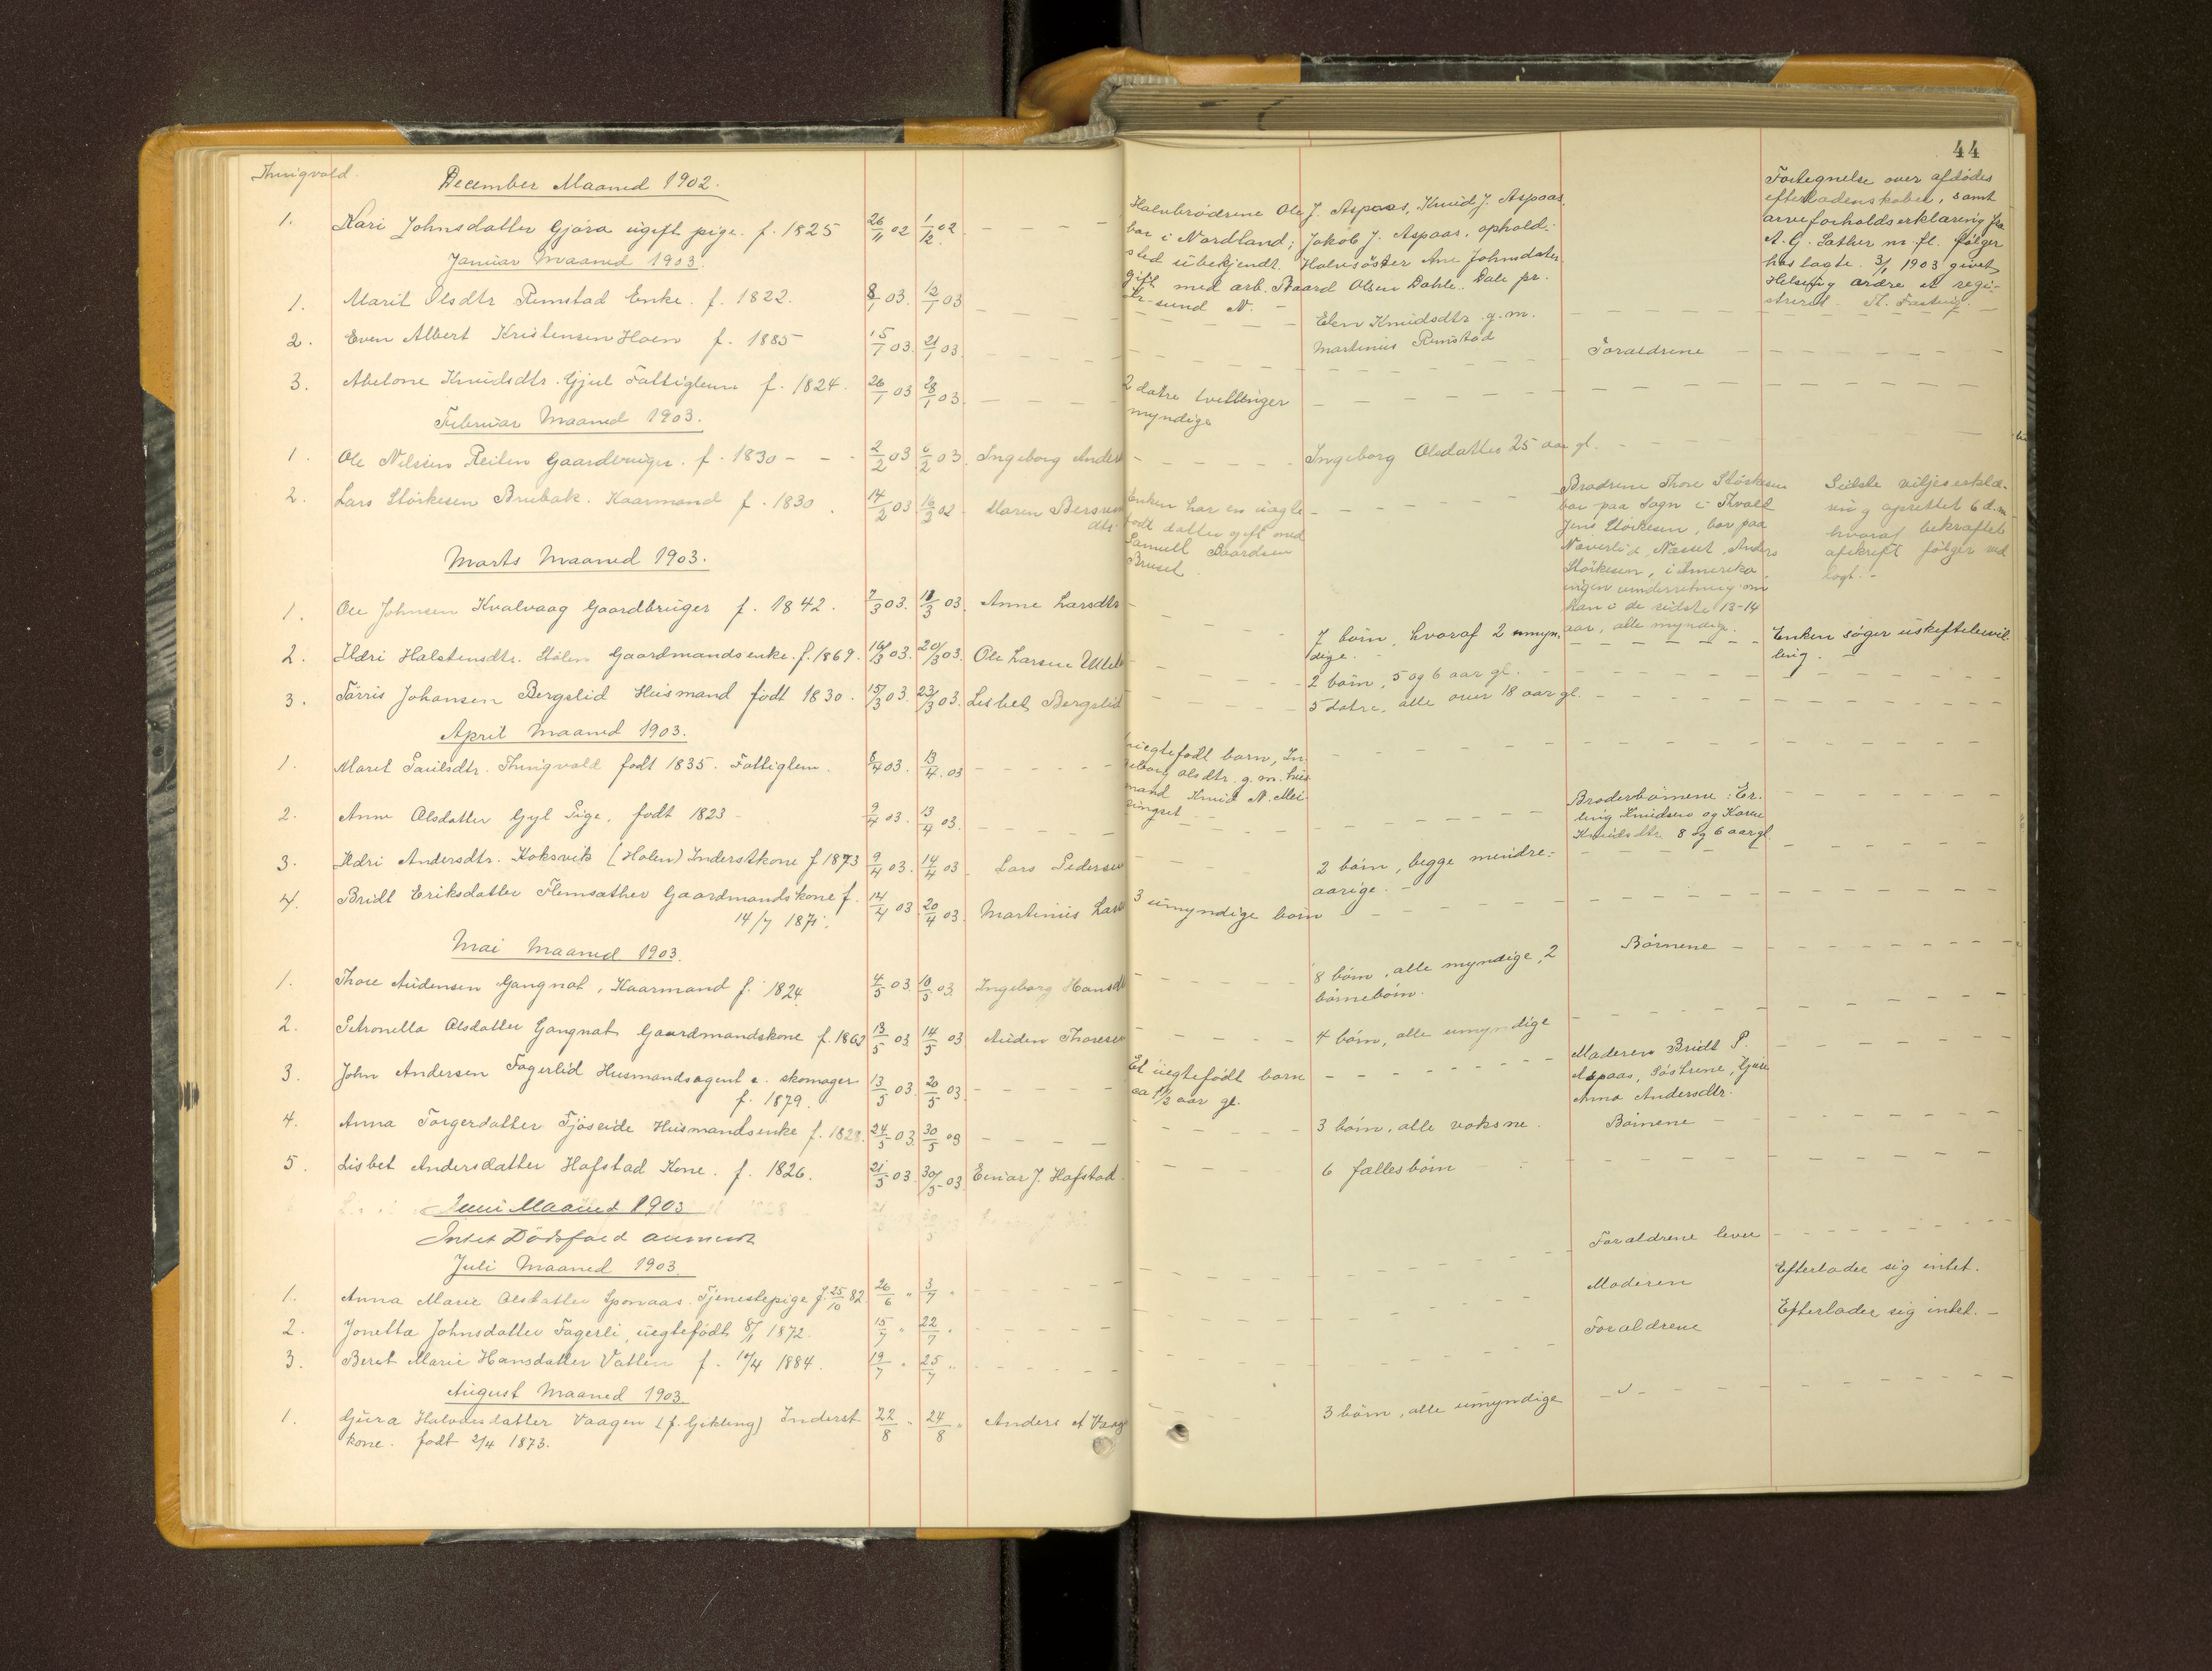 44
Thingvold.
December Maaned 1902.
1. Kari Johnsdatter Gjöra ugift pige. f. 1825 26/11 02 1/12 02 - - - -
Halvbrödrene Ole J. Aspaas, Knud J. Aspaas,
bor i Nordland; Jakob J. Aspaas, ophold-
sted ubekjendt. Halvsöster Ane Johnsdatter
gift med arb. Baard Olsen Dahle. Dale pr.
Kr-sund N. -
Fortegnelse over afdödes
efterladenskaber, samt
arveforholdserklæring fra
A. G. Sæther m. fl. fölger
hoslagte. 3/1 1903 givet
ordre
Januar Maaned 1903.
1. Marit Olsdtr Remstad Enke. f. 1822. 8/1 03. 12/1 03
Elen Knudsdtr. g. m.
Martinus Remstad
2. Even Albert Kristensen Hoem f. 1885 15/1 03. 21/1 03. Forældrene
3. Abelone Knudsdtr. Gjul Fattiglem f. 1824. 26/1 03 28/1 03.
2 døtre tvillinger
myndige
Februar Maaned 1903.
1. Ole Nilsen Reiten Gaardbruger. f. 1830 - - - 2/2 03 6/2 03. Ingeborg Anders Ingeborg Olsdatter 25 aar gl.
2. Lars Störkesen Brubak. Kaarmand f. 1830. 14/2 03. 16/2 03 Maren
dtr.
Enken har en uægte
født datter gift med
Samuel Baardsen
Brusel.
Brødrene Thore Störkesen
bor paa Sogn i Thvold
Jens Störkesen, bor paa
Naverlid, Næsset, Anders
Störkesen, i Amerika,
ingen underretning om
ham i de sidste 13-14
aar, alle myndige.
Sidste viljeserklæ-
ring oprettet 6 d.m
hvoraf bekræftet
afskrift fölger ved
lagt. -
Marts Maaned 1903.
1. Ole Johnsen Kvalvaag Gaardbruger f. 1842. 7/3 03. 11/3 03. Anne Larsdtr
7 börn, hvoraf 2 umyn-
dige.
Enken söger uskiftebevil-
ling. -
2. Ildri Halstensdtr. Stölen Gaardmandsenke. f. 1869. 16/3 03. 20/3 03. Ole Larsen 2 börn, 5 og 6 aar gl. -
3. Törris Johansen Bergslid Husmand födt 1830. 15/3 03. 23/3 03. Lisbet Bergslid 5 døtre, alle over 18 aar gl.
April Maaned 1903.
1. Marit Paulsdtr. Thingvold født 1835. Fattiglem. 8/4 03. 13/4. 03
uægtefødt barn, In-
geborg Olsdtr. g. m. hus
mand Knud N. Mei-
singset
2. Anne Olsdatter Gyl Pige, født 1823 - 9/4 03. 13/4 03.
Broderbörnene: Er-
ling Knudsen og Karen
Knudsdtr. 8 og 6 aar gl.
3. Ildri Andersdtr. Koksvik (Holen) Inderstkone f 1873 9/4 03. 14/4 03. Lars Pedersen
2 börn, begge mindre-
aarige. -
4. Bridt Eriksdatter Flemsæther Gaardmandskone f. 14/4 03. 20/4 03. Martinus Lars 3 umyndige börn
14/7 1871.
Mai Maaned 1903.
1. Thore Audensen Gangnat, Kaarmand f. 1824. 4/5 03. 10/5 03. Ingeborg Hansd
8 börn, alle myndige, 2
börnebörn.
Börnene -
2. Petronella Olsdatter Gangnat Gaardmandskone f. 1863 13/5 03. 14/5 03 Auden Thoresen 4 börn, alle umyndige
3. John Andersen Fagerlid Husmandsagent & skomager 13/5 03. 20/5 03.
f. 1879.
Et uegtefödt barn
ca 1 1/2 aar gl.
Moderen Bridt P.
Aspaas, Söstrene, Gjöri
Anna Andersdtr.
4. Anna Torgerdatter Tjöseide Husmandsenke f. 1828. 24/5 03. 30/5 03 3 börn, alle voksne. Börnene
5. Lisbet Andersdatter Hofstad Kone. f. 1826. 21/5 03. 30/5 03. Einar J. Hofstad 6 fællesbörn
Juni Maaned 1903
Intet Dödsfald anmeldt
Juli Maaned 1903.
1. Anna Marie Olsdatter Sponaas. Tjenestepige f. 25/10 82. 26/6 " 3/7 " Forældrene lever
2. Jonetta Johnsdatter Fagerli, uegtefödt 8/1 1872. 15/7 " 22/7 " Moderen Efterlader sig intet.
3. Beret Marie Hansdatter Vatten f. 10/4 1884. 19/7 " 25/7 " Forældrene Efterlader sig intet. -
August Maaned 1903.
1. Gjura Halvorsdatter Vaagen (f. Gikling) Inderst 22/8 " 24/8 " Anders A Vaag 3 börn, alle umyndige
kone. født 2/4 1873.